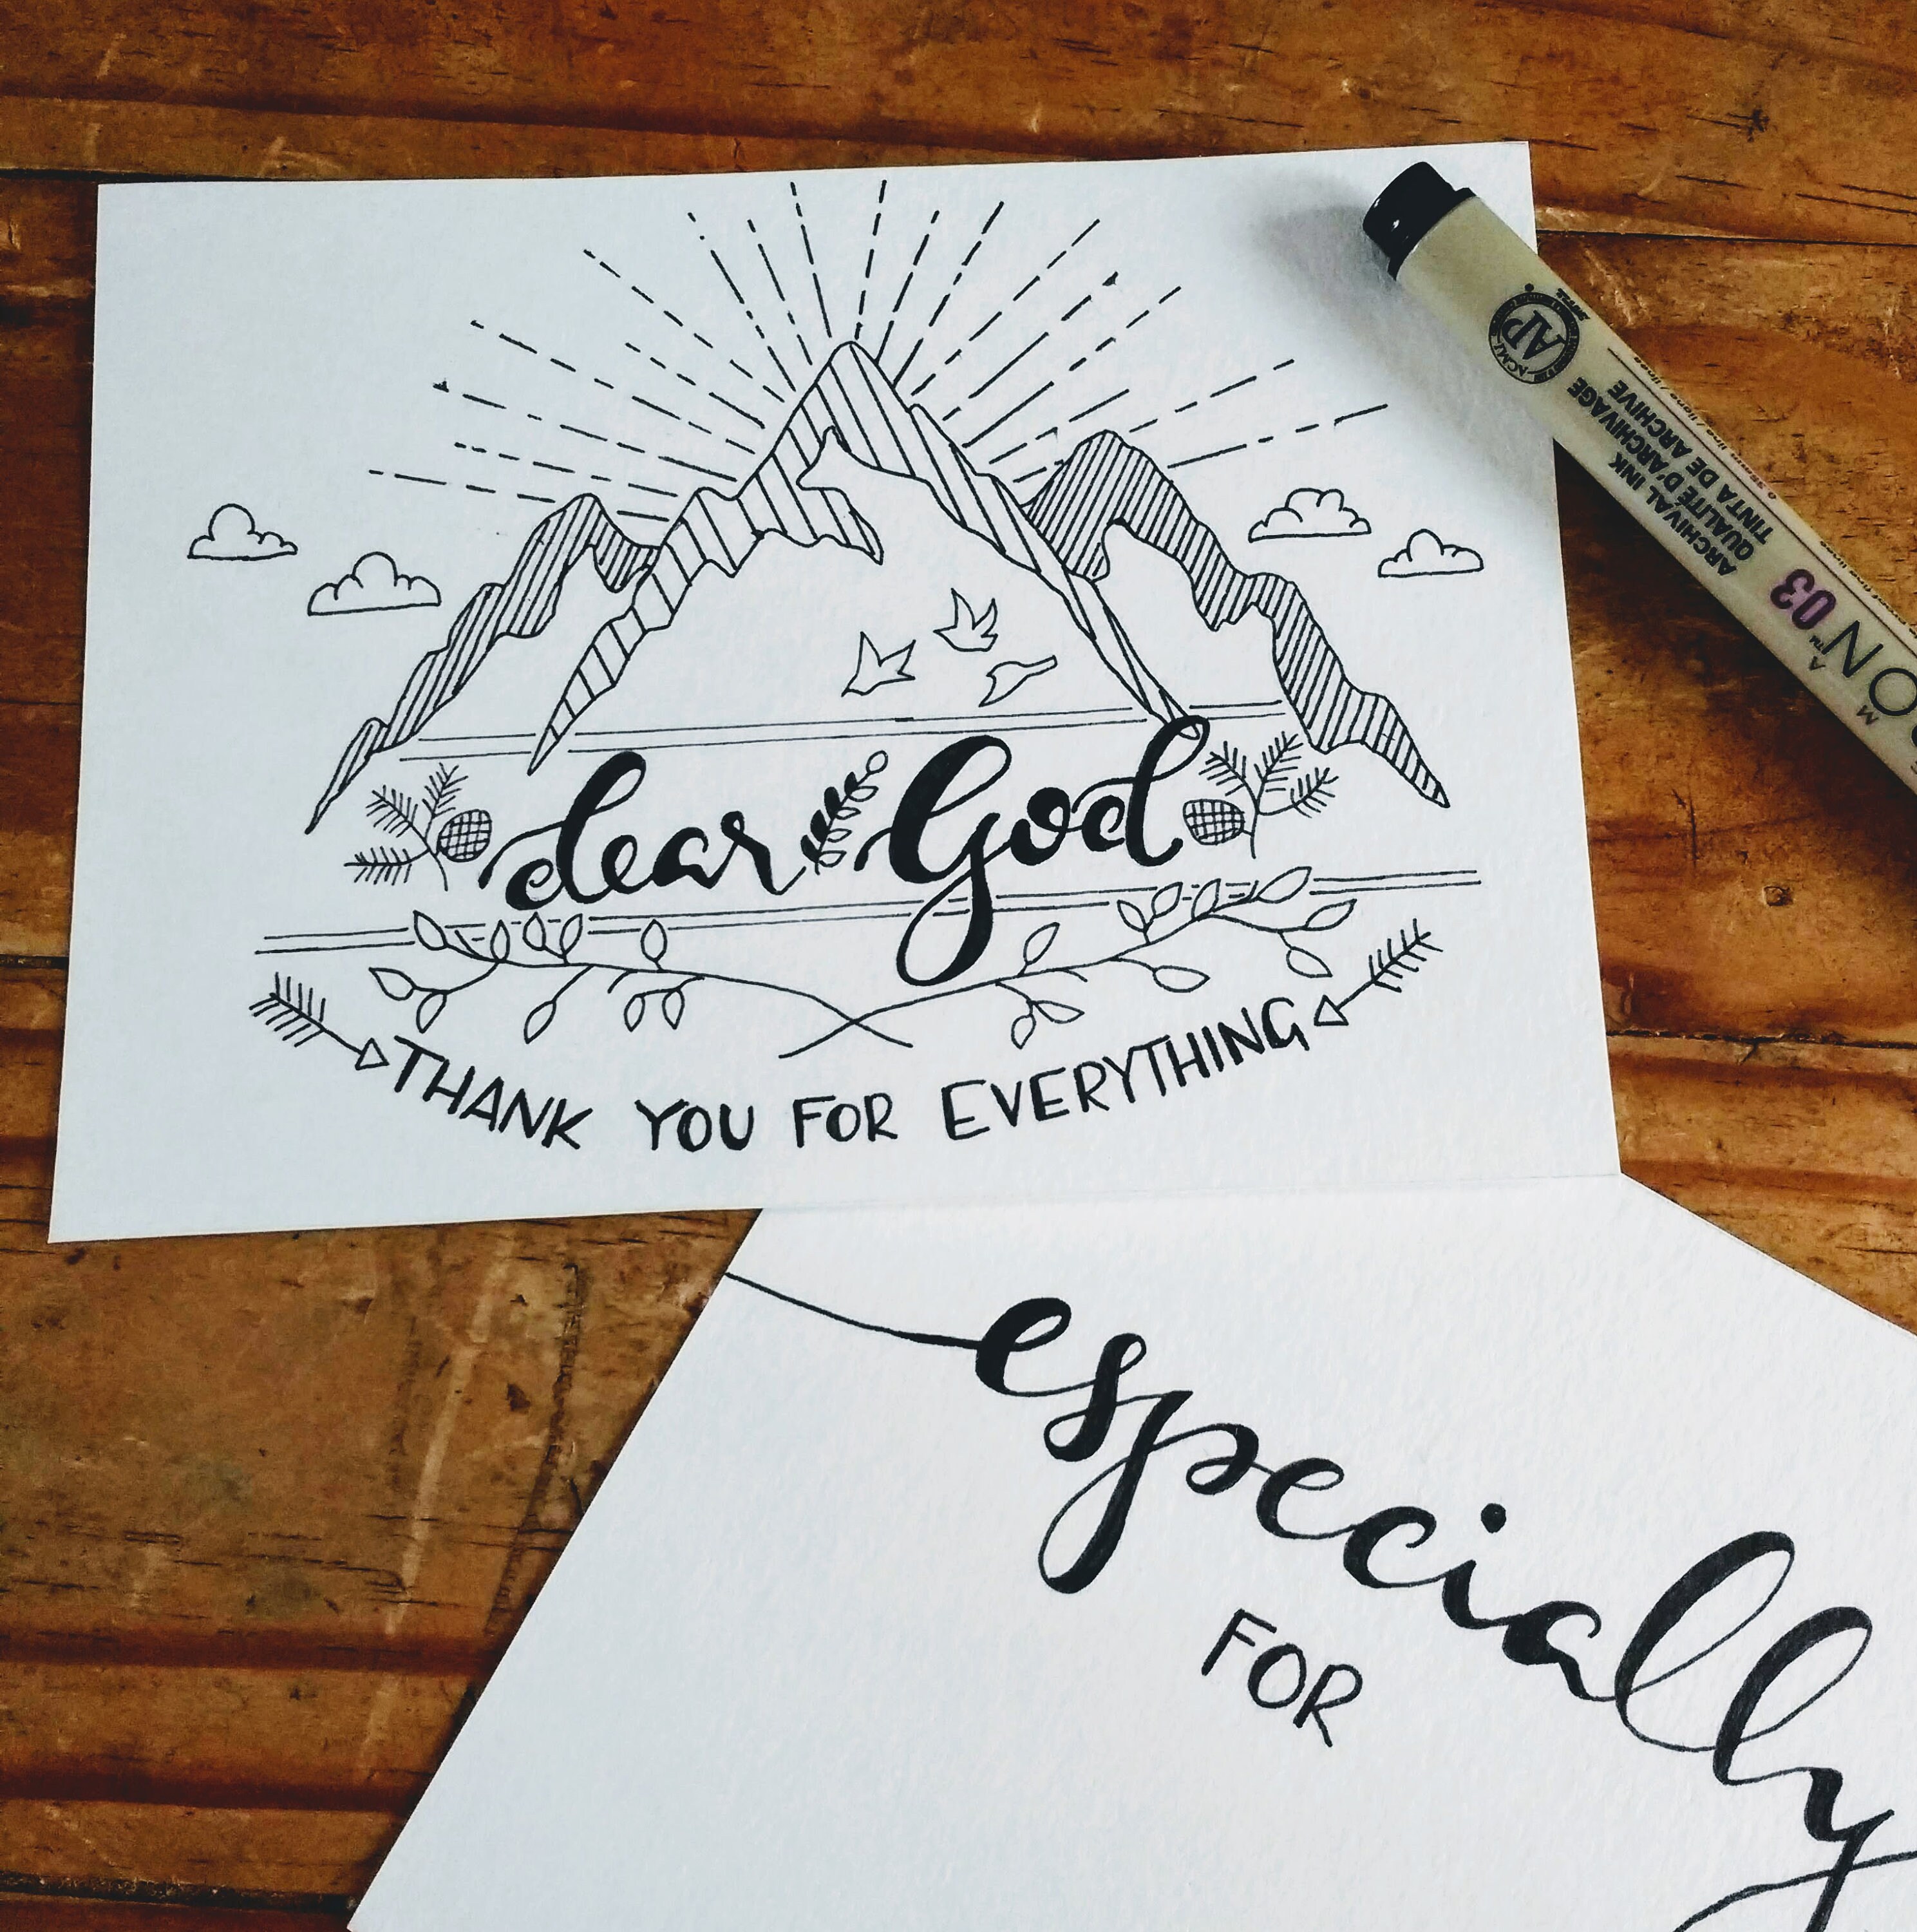 dear God
THANK YOU FOR EVERYTHING
especially
FOR
AP
ACMI
ARCHIVAL INK
QUALITÉ D'ARCHIVAGE
TINTA DE ARCHIVE
03